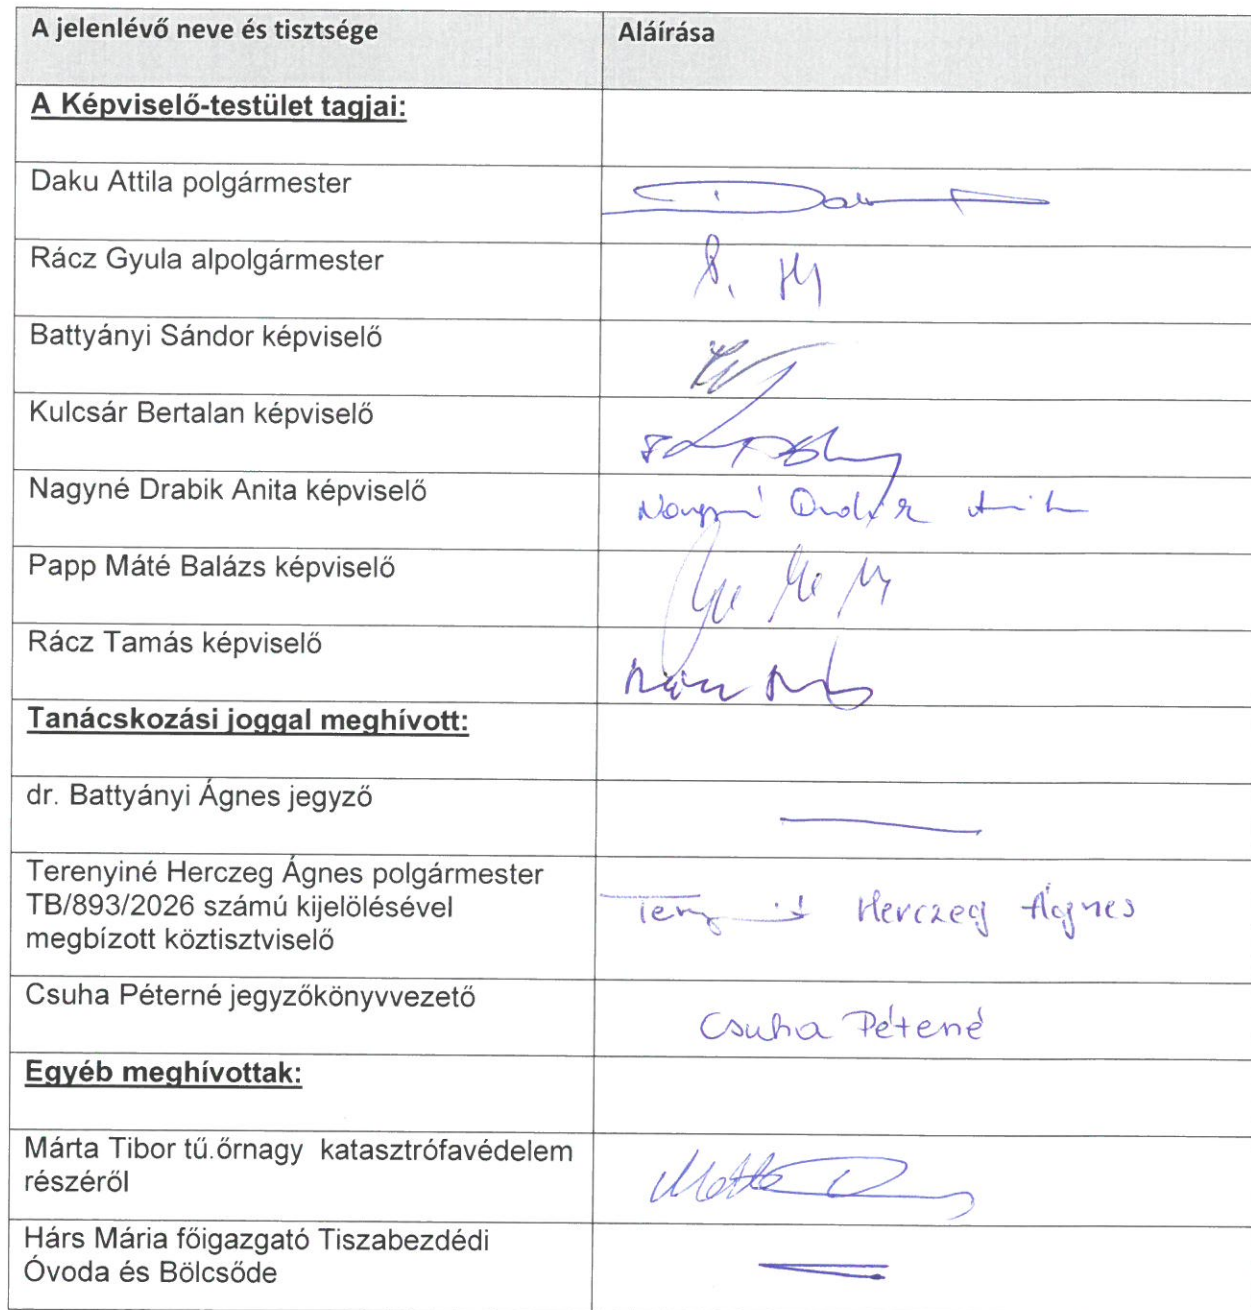 A jelenlévő neve és tisztsége Aláírása
A Képviselő-testület tagjai:
Daku Attila polgármester
Rácz Gyula alpolgármester
Battyányi Sándor képviselő
Kulcsár Bertalan képviselő
Nagyné Drabik Anita képviselő
Papp Máté Balázs képviselő
Rácz Tamás képviselő
Tanácskozási joggal meghívott:
dr. Battyányi Ágnes jegyző
Terenyiné Herczeg Ágnes polgármester
TB/893/2026 számú kijelölésével
megbízott köztisztviselő
Herczeg Ágnes
Csuha Péterné jegyzőkönyvvezető
Csuha Péterné
Egyéb meghívottak:
Márta Tibor tű.őrnagy katasztrófavédelem
részéről
Hárs Mária főigazgató Tiszabezdédi
Óvoda és Bölcsőde